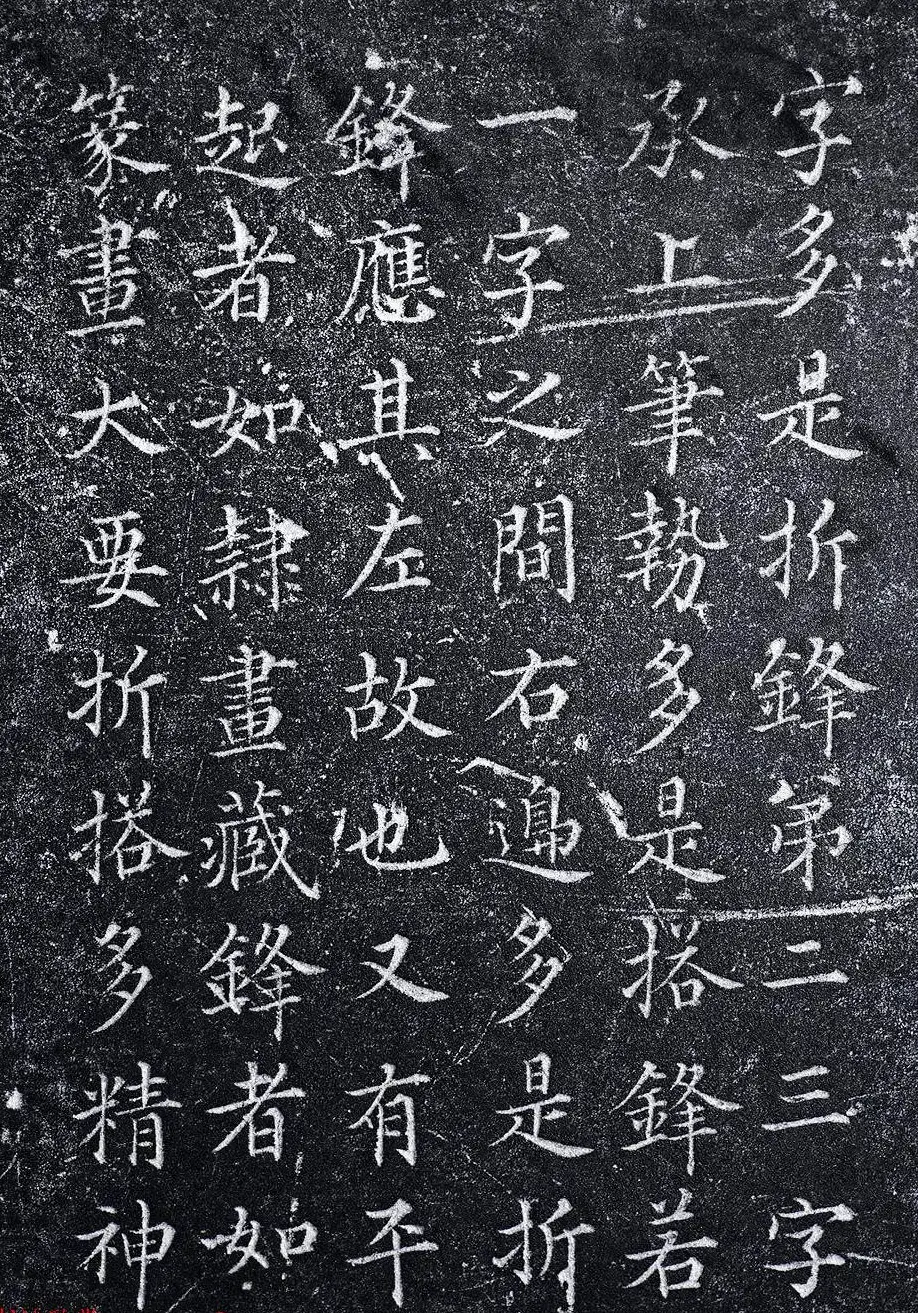 字多是折鋒第二三字
承上筆勢多是搭鋒若
一字之間右邊多是折
鋒應其左故也又有平
起者如隸畫藏鋒者如
篆畫大要折搭多精神